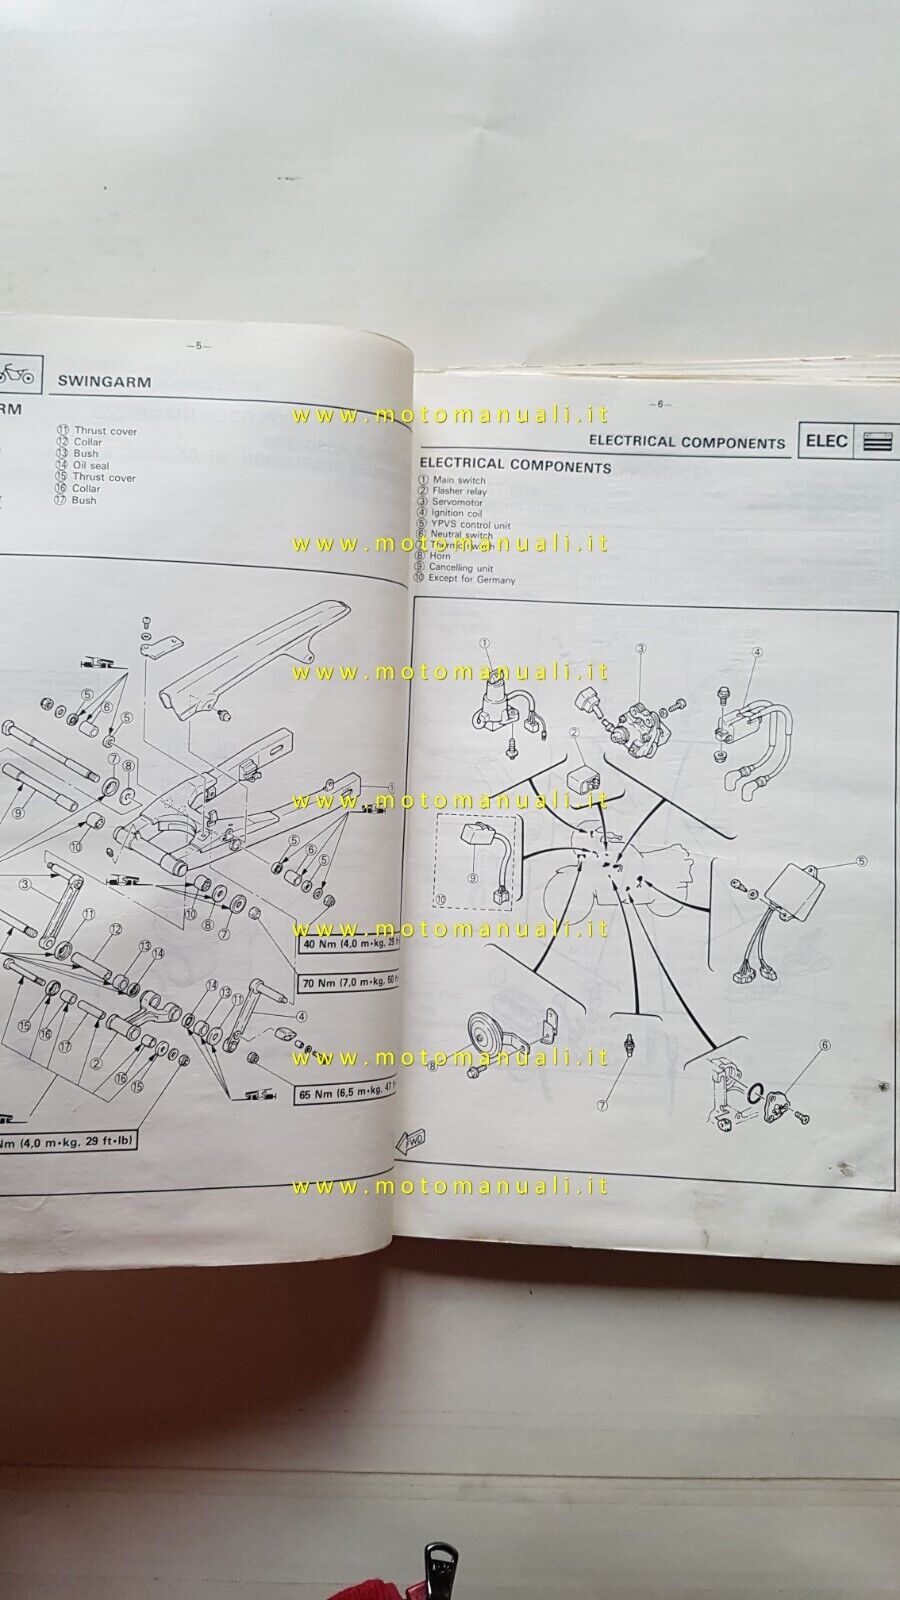 —5—
SWINGARM
RM
⑪ Thrust cover
⑫ Collar
⑬ Bush
⑭ Oil seal
⑮ Thrust cover
⑯ Collar
⑰ Bush
40 Nm (4,0 m•kg, 29 f
70 Nm (7,0 m•kg, 50 f
65 Nm (6,5 m•kg, 47 f
Nm (4,0 m•kg, 29 ft•lb)
—6—
ELECTRICAL COMPONENTS
ELEC
ELECTRICAL COMPONENTS
① Main switch
② Flasher relay
③ Servomotor
④ Ignition coil
⑤ YPVS control unit
⑥ Neutral switch
⑦ Thermo switch
⑧ Horn
⑨ Cancelling unit
⑩ Except for Germany
FWD
www.motomanuali.it
www.motomanuali.it
www.motomanuali.it
www.motomanuali.it
www.motomanuali.it
www.motomanuali.it
www.motomanuali.it